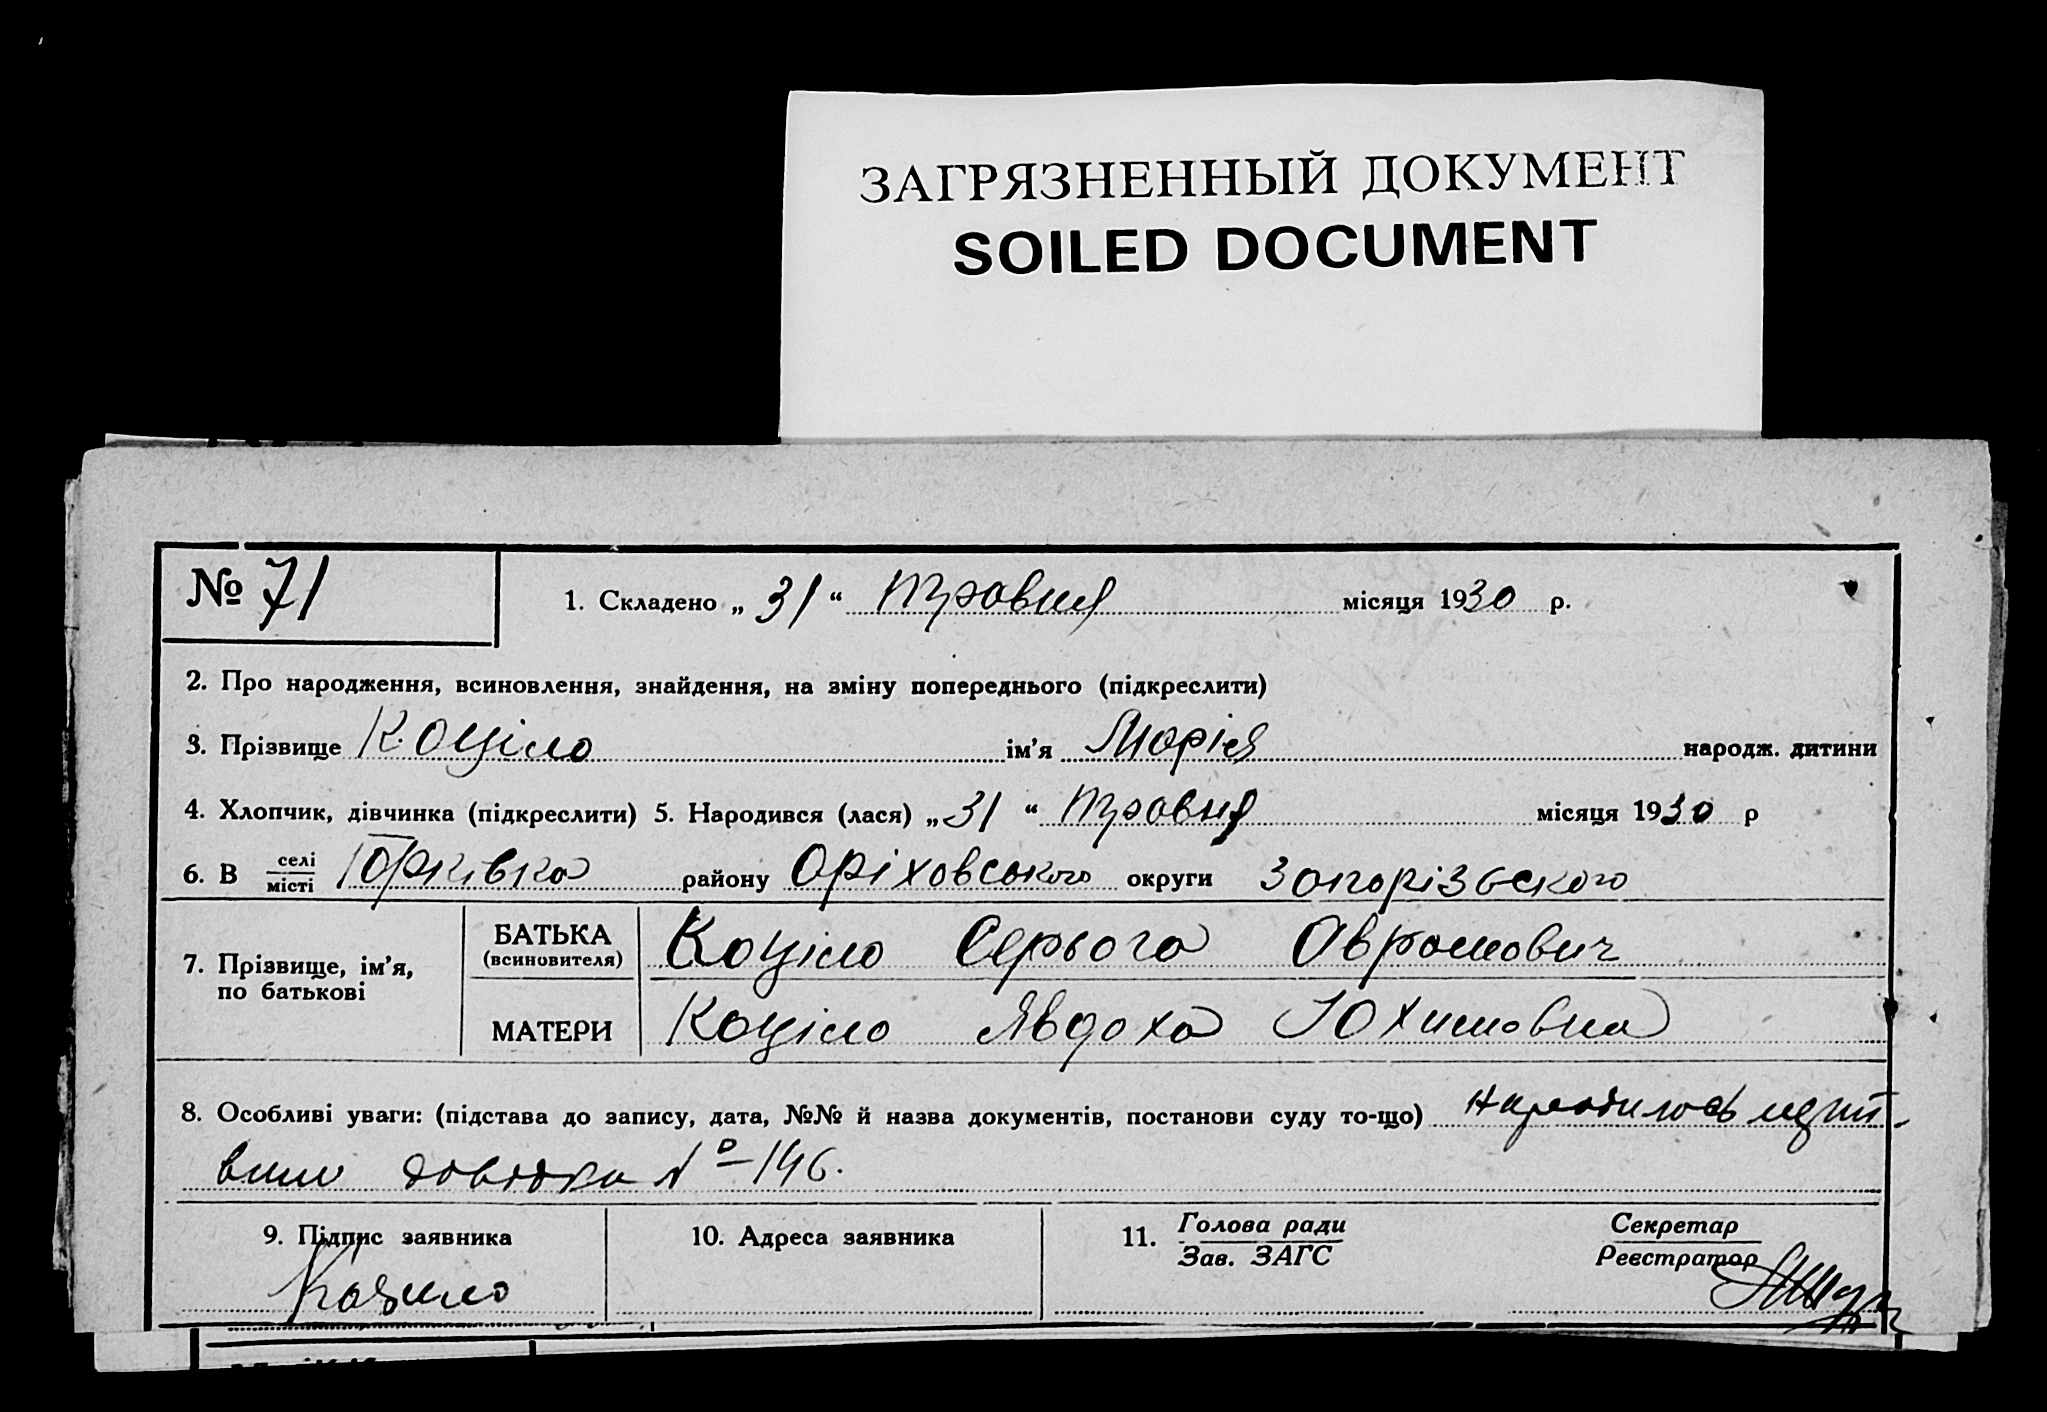 ЗАГРЯЗНЕННЫЙ ДОКУМЕНТ
SOILED DOCUMENT
№ 71
1. Складено „ 31 “ травня місяця 1930 р.
2. Про народження, всиновлення, знайдення, на зміну попереднього (підкреслити)
3. Прізвище Коціло ім’я Марія народж. дитини
4. Хлопчик, дівчинка (підкреслити) 5. Народився (лася) „ 31 “ травня місяця 1930 р
6. В селі місті Юрківка району Оріховського округи Запорізьского
7. Прізвище, ім’я, по батькові
БАТЬКА (всиновителя) Коціло Серьога Аврамович
МАТЕРИ Коціло Явдоха Юхимовна
8. Особливі уваги: (підстава до запису, дата, №№ й назва документів, постанови суду то-що) народилось мерт-
вим довідка № 146.
9. Підпис заявника 10. Адреса заявника 11. Голова ради Секретар
Зав. ЗАГС Реєстратор